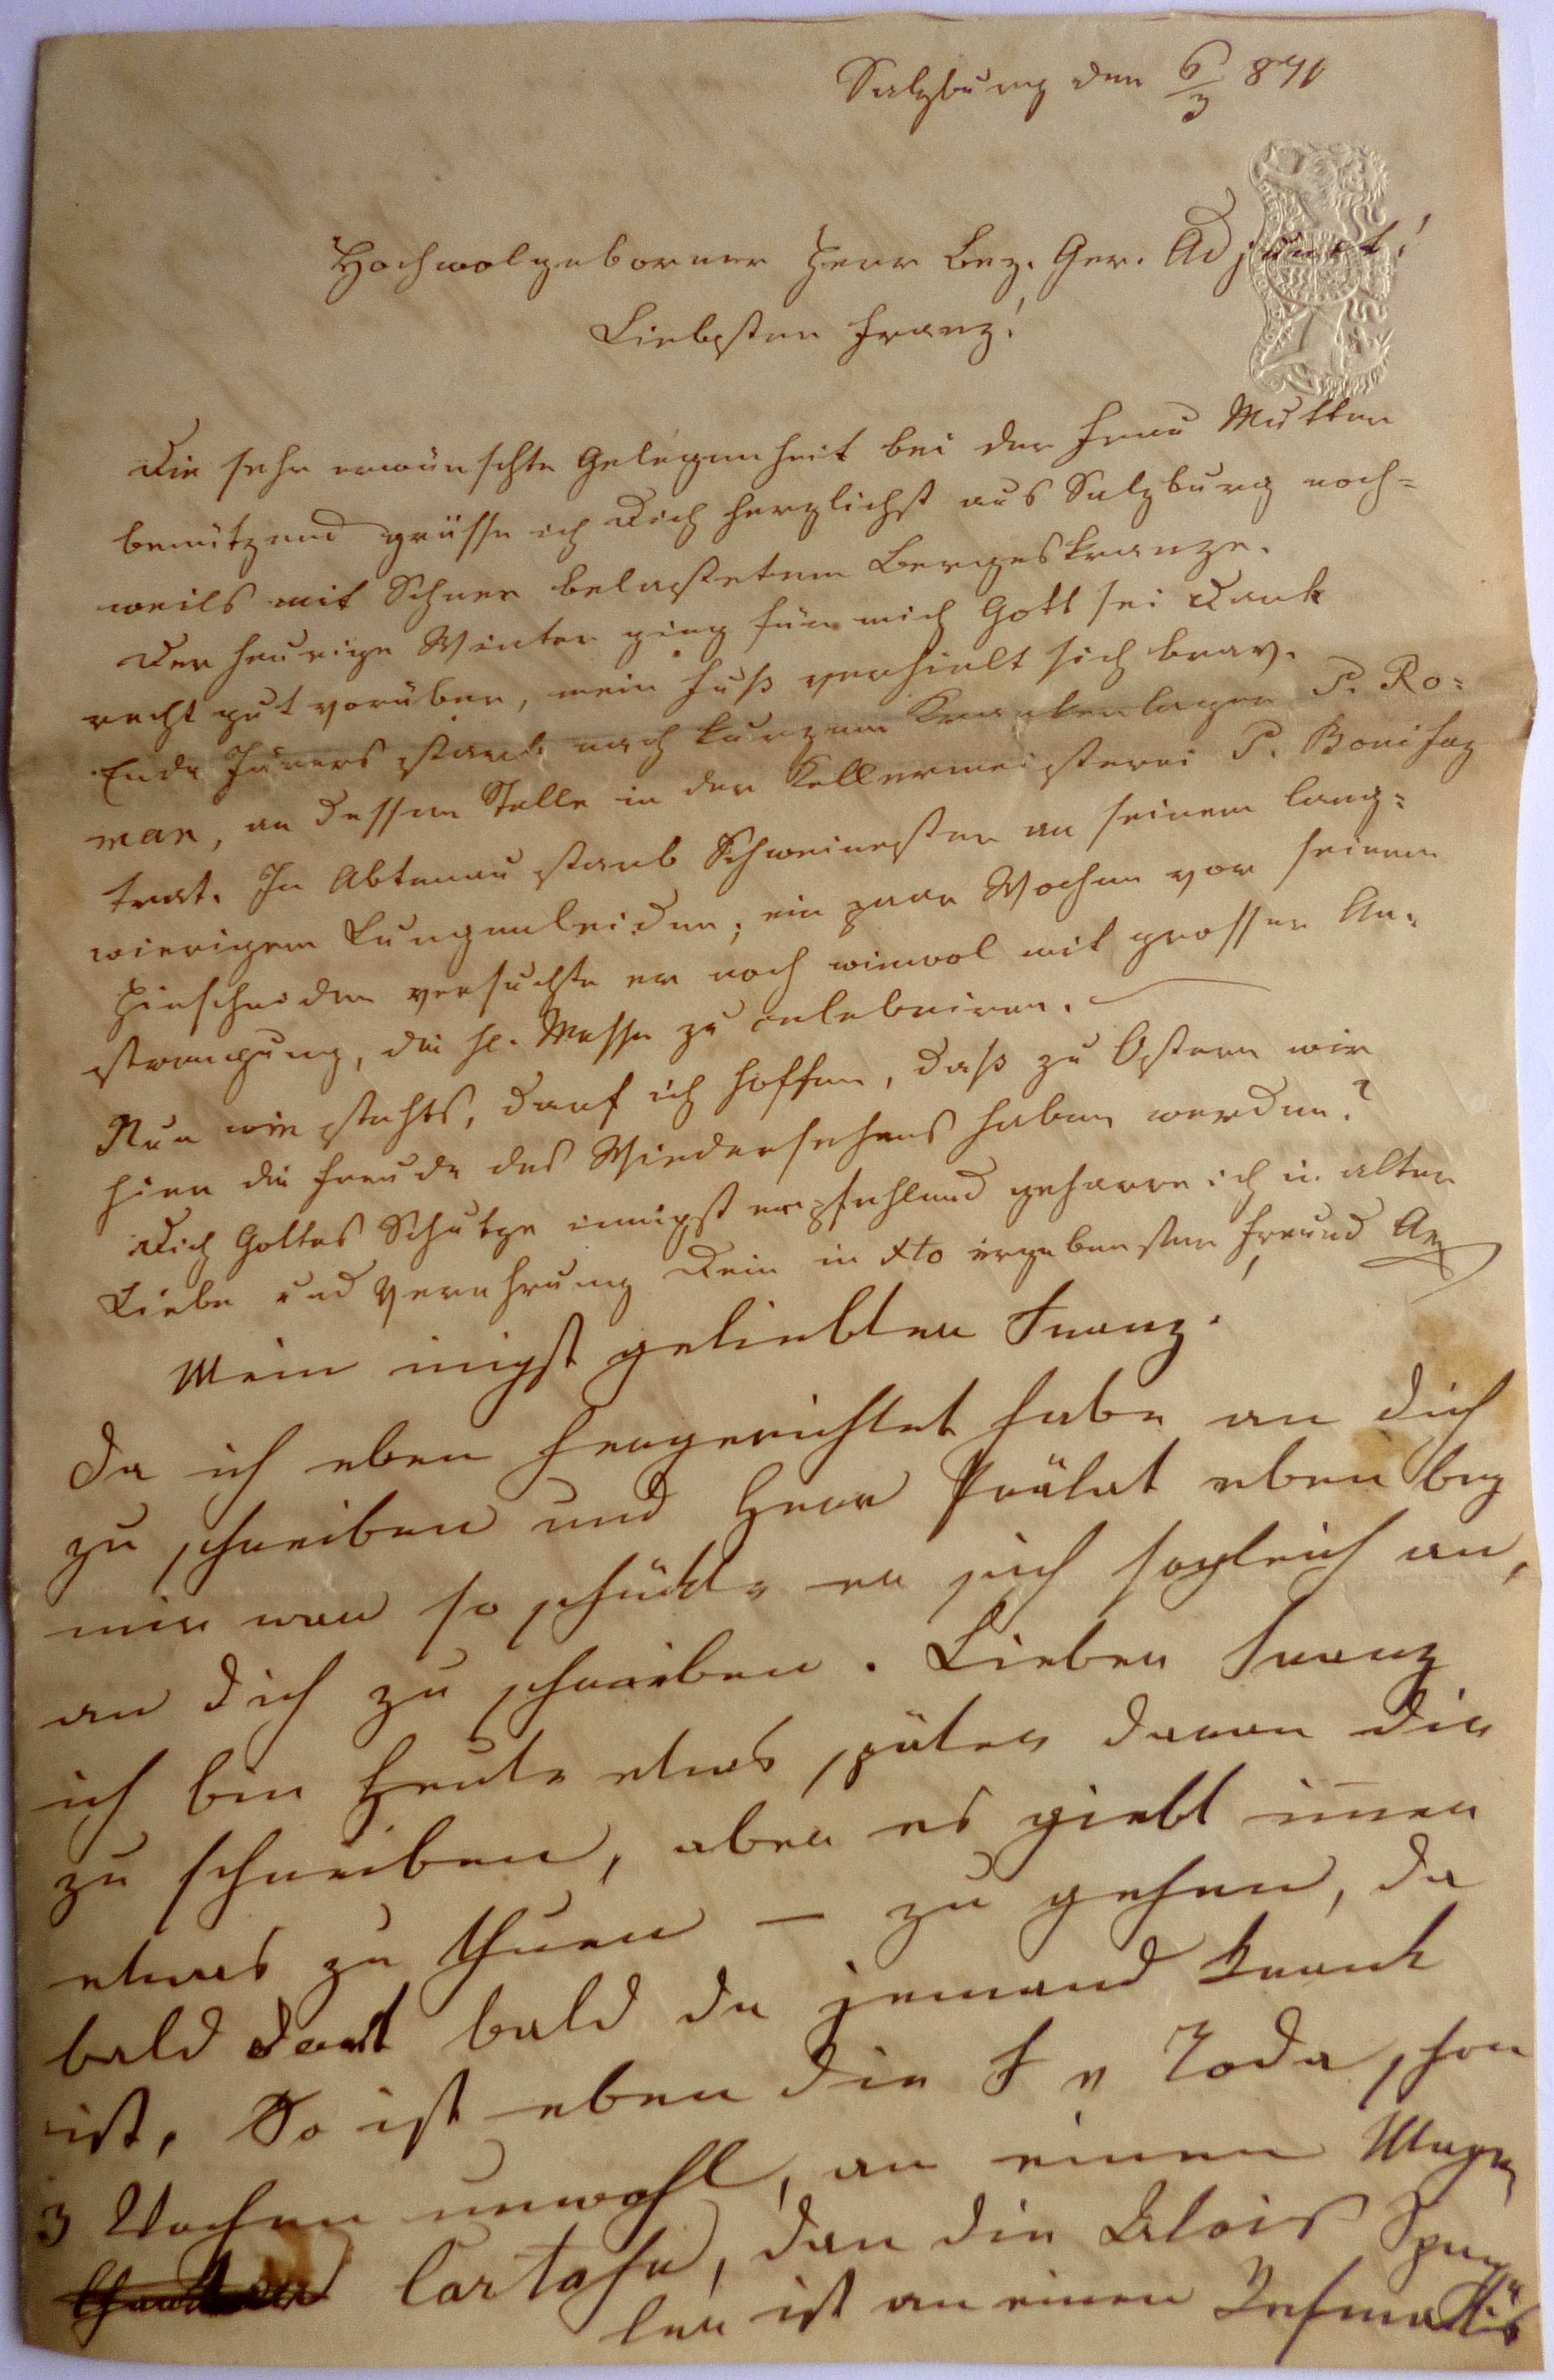 Salzburg den 6/3 871
Hochwolgeborner Herr Bez. Ger. Adjunct!
Liebster Franz!
Die sehr erwünschte Gelegenheit bei der Frau Mutter
benützend grüsse ich Dich herzlichst aus Salzburg noch=
weils mit Schnee belastetem Bergeskranze.
Der heurige Winter ging für mich Gott sei Dank
recht gut vorüber, mein Fuß verhielt sich brav.
Ende Jäners starb nach kurzem Krankenlager P. Ro=
man, an dessen Stelle in der Kellermeisterei P. Bonifaz
trat. In Abtenau starb Schweinester an seinem lang=
wierigem Lungenleiden; ein paar Wochen vor seinem
Hinscheiden versuchte er noch wiewol mit grosser An=
strengung, die hl. Messe zu celebriren.
Nun wie stehts, darf ich hoffen, daß zu Ostern wir
hier die Freude des Wiedersehens haben werden?
Dich Gottes Schutze innigst empfehlend geharre ich in alter
Liebe und Verehrung Dein in Xto ergebenster Freund
Mein inigst geliebter Franz.
Da ich eben hergerichtet habe an dich
zu schreiben und Herr Prälat eben bey
mir war so schückte er sich sogleich an,
an dich zu schreiben. Lieber Franz
ich bin heute etwas später daran dir
zu schreiben, aber es giebt im̅er
etwas zu thuen — zu gehen, da
bald dort bald da jemand krank
ist, So ist eben die F v Joda schon
3 Wochen unwohl, an einen Magen
Cartahr, dan die Alois Späng
ler ist an einen Rehmattis